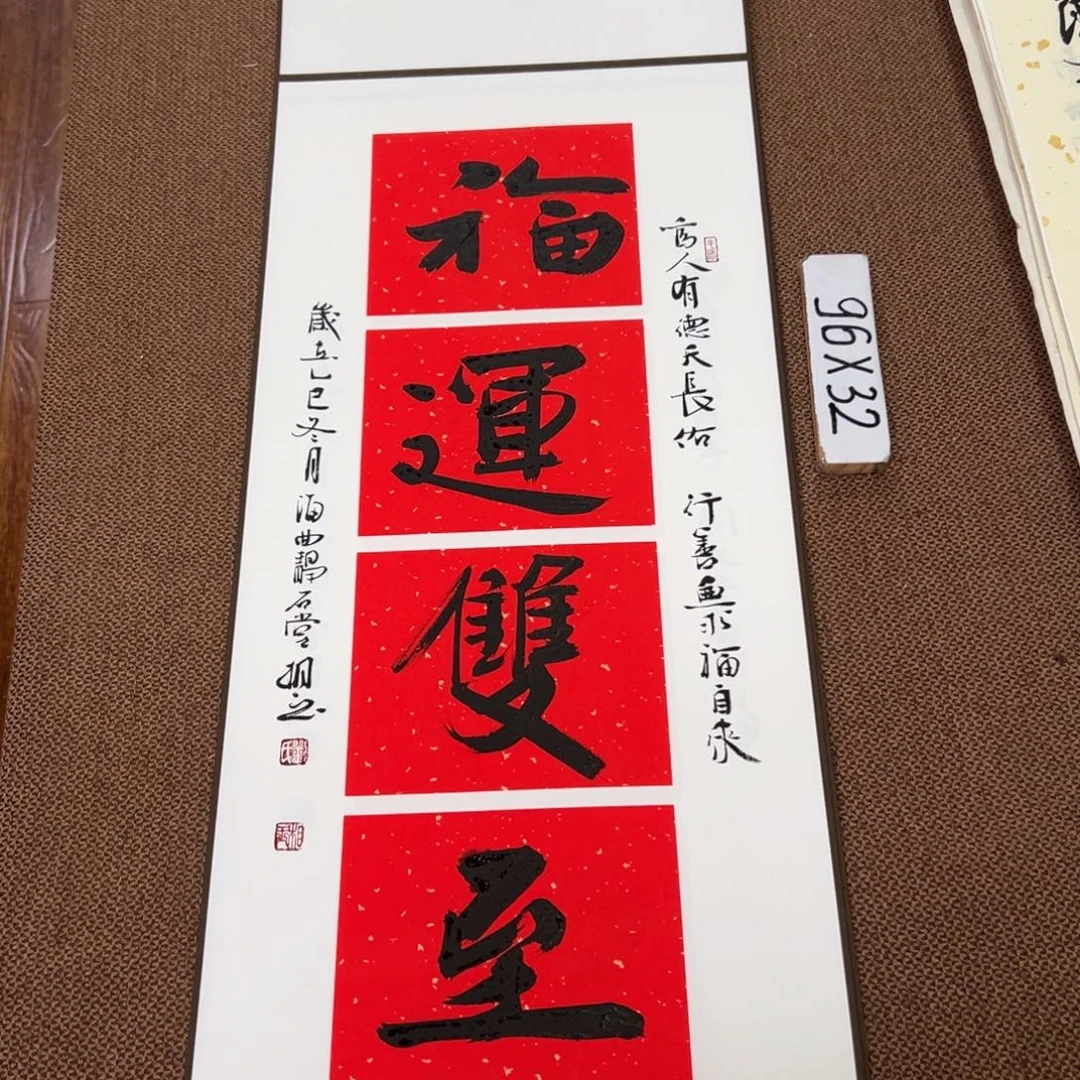 福
運
雙
至
為人有德天長佑 行善無求福自來
歲在乙巳冬月海曲靜石堂
96X32